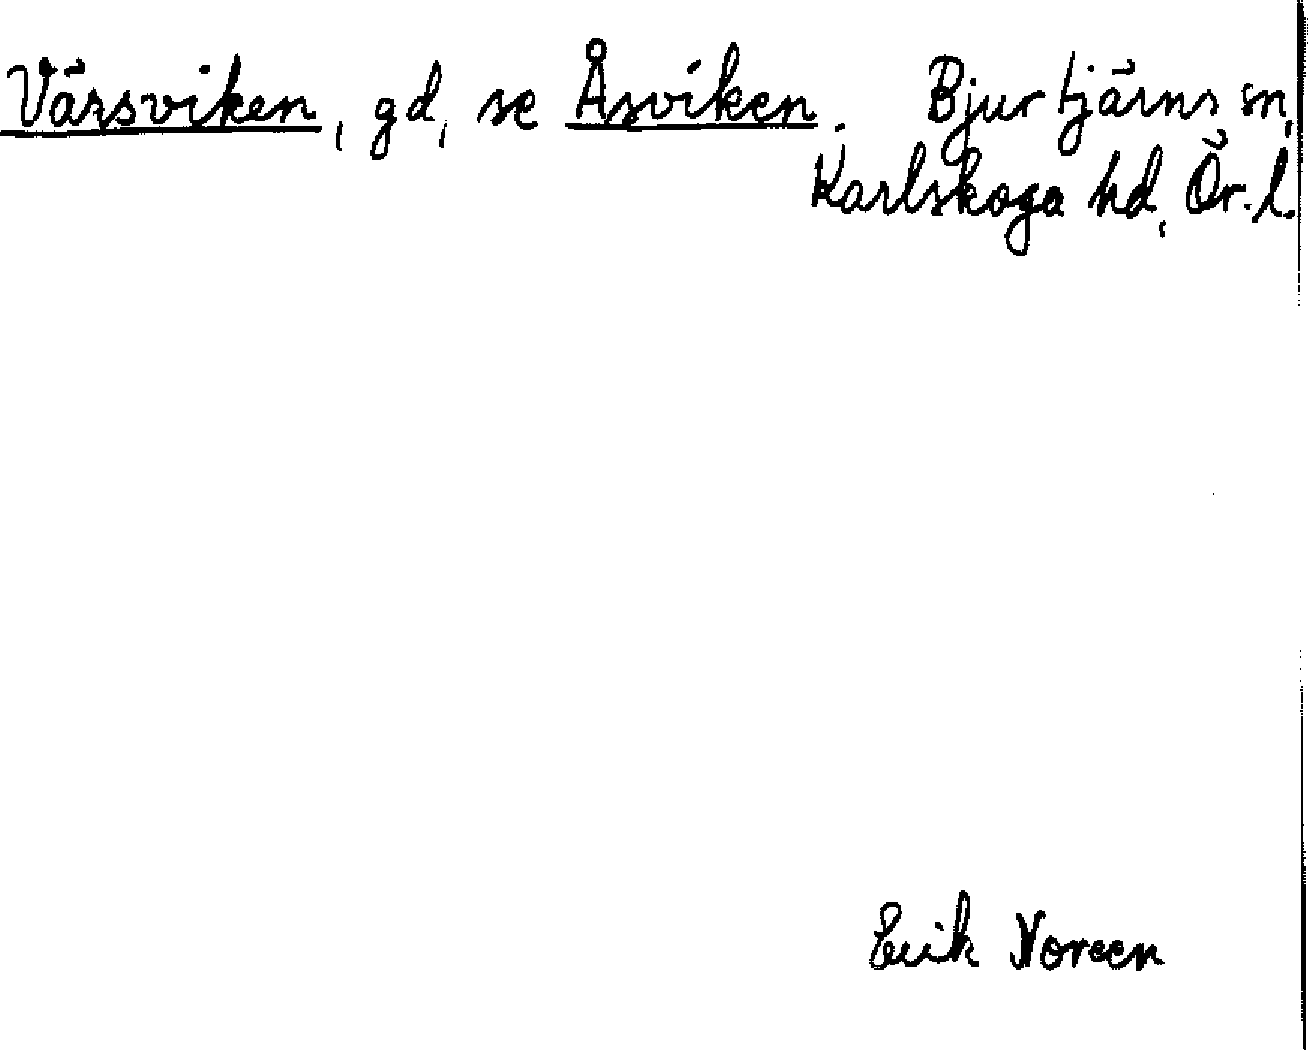 Värsviken, gd, se Åsviken. Bjurtjärns sn,
Karlskoga hd, Ör. l.
Erik Noreen